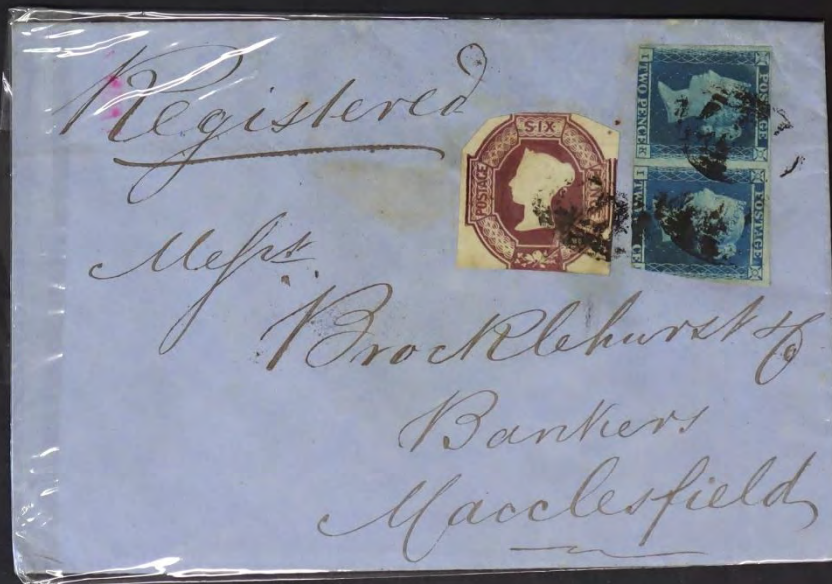 Registered
SIX
POSTAGE
POSTAGE
TWO PENCE
K I
POSTAGE
K I
Messrs
Brocklehurst & Co
Bankers
Macclesfield